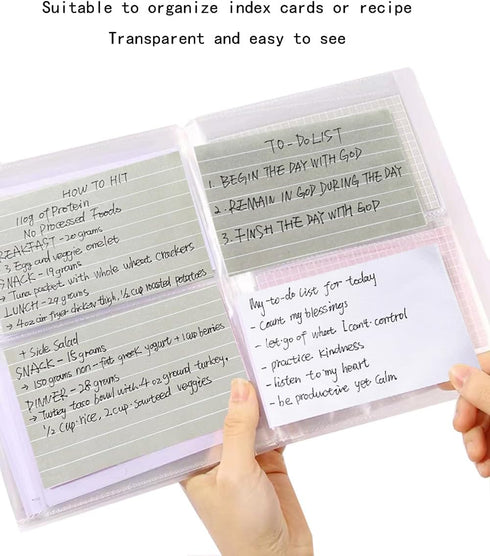 Suitable to organize index cards or recipe
Transparent and easy to see
HOW TO HIT
110g of Protein
No Processed Foods
BREAKFAST - 20 grams
3 Egg and veggie omelet
SNACK - 19 grams
→ Tuna packet with whole wheat crackers
LUNCH - 29 grams
→ 4 oz air fryer chicken thigh, 1/2 cup roasted potatoes
+ Side Salad
SNACK - 18 grams
→ 150 grams non-fat greek yogurt + 1 cup berries
DINNER - 28 grams
→ Turkey taco bowl with 4 oz ground turkey,
1/2 cup rice, 2 cup sauteed veggies
TO-DO LIST
1. BEGIN THE DAY WITH GOD
2. REMAIN IN GOD DURING THE DAY
3. FINSH THE DAY WITH GOD
My to-do list for today
- Count my blessings
- let go of wheet I can't control
- practice kindness
- listen to my heart
- be productive yet Calm